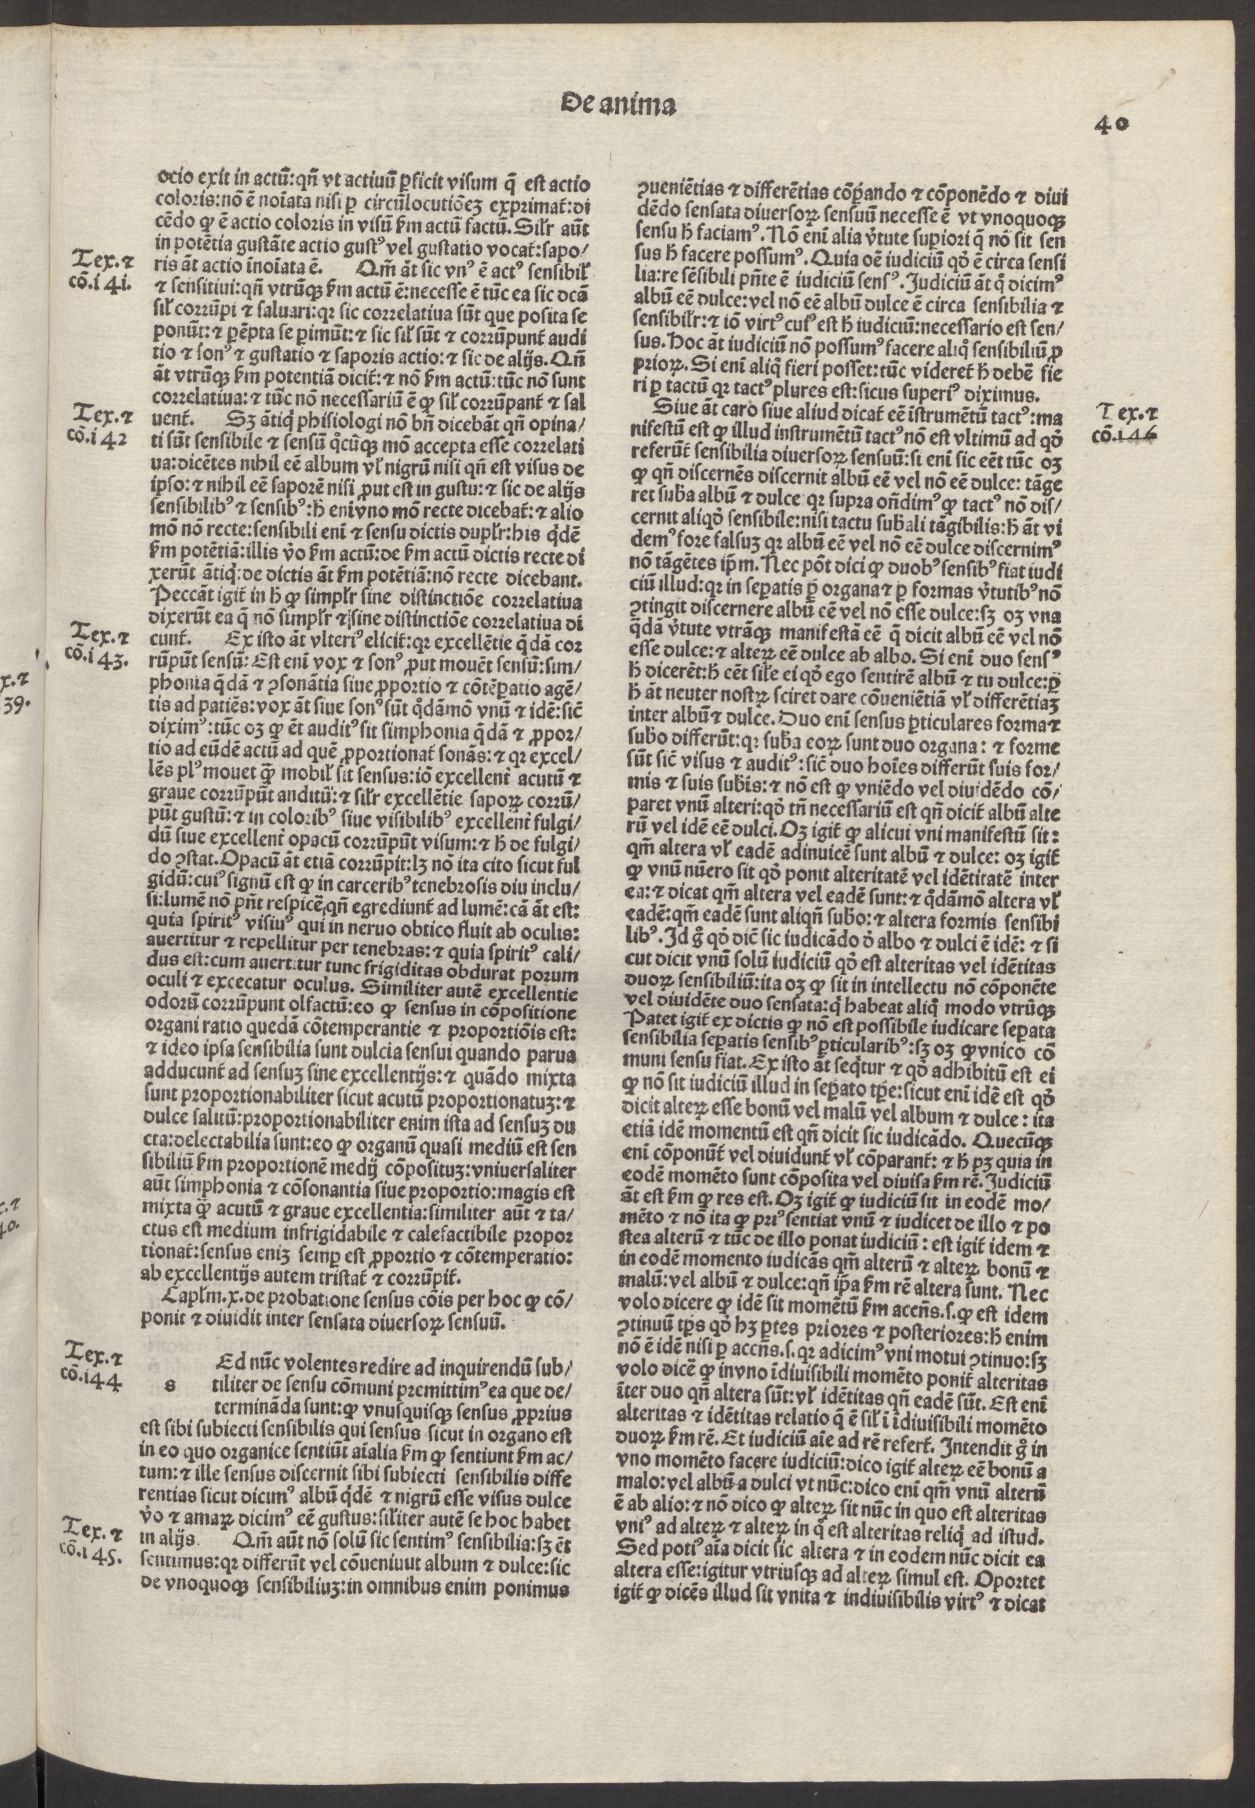 De anima
40
ocio exit in actũ: qñ vt actiuũ ꝑficit visum q̃ est actio
coloris: nõ ẽ noĩata nisi ꝑ circũlocutiõeʒ exprimat᷑: di
cẽdo ꝙ ẽ actio coloris in visũ ẜm actũ factũ. Silr̃ aũt
in potẽtia gustãte actio gustꝰ vel gustatio vocat᷑: sapo/
ris ãt actio inoĩata ẽ. Qm̃ ãt sic vnꝰ ẽ actꝰ sensibiľ
Tex. ⁊
cõ. 141.
⁊ sensitiui: qñ vtrũqꝫ ẜm actũ ẽ: necesse ẽ tũc ea sic dcã
siľ corrũpi ⁊ saluari: qꝛ sic correlatiua sũt que posita se
ponũt: ⁊ ꝑẽpta se ꝑimũt: ⁊ sic siľ sũt ⁊ corrũpunt᷑ audi
tio ⁊ sonꝰ ⁊ gustatio ⁊ saporis actio: ⁊ sic de alijs. Qñ
ãt vtrũqꝫ ẜm potentiã dicit᷑: ⁊ nõ ẜm actũ: tũc nõ sunt
correlatiua: ⁊ tũc nõ necessariũ ẽ ꝙ siľ corrũpant᷑ ⁊ sal
uent᷑. Sʒ ãtiq̇ phisiologi nõ bñ dicebãt qñ opina/
Tex. ⁊
cõ. 142
ti sũt sensibile ⁊ sensũ q̇cũqꝫ mõ accepta esse correlati
ua: dicẽtes nihil eẽ album vľ nigrũ nisi qñ est visus de
ipso: ⁊ nihil eẽ saporẽ nisi ꝓut est in gustu: ⁊ sic de alijs
sensibilibꝰ ⁊ sensibꝰ: h̃ enĩ vno mõ recte dicebat᷑: ⁊ alio
mõ nõ recte: sensibili enĩ ⁊ sensu dictis duplr̃: his q̇dẽ
ẜm potẽtiã: illis v̊o ẜm actũ: de ẜm actũ dictis recte di
xerũt ãtiq̇: de dictis ãt ẜm potẽtiã: nõ recte dicebant.
Peccãt igit᷑ in h̃ ꝙ simplr̃ sine distinctiõe correlatiua
dixerũt ea q̃ nõ simplr̃ ⁊ sine distinctiõe correlatiua di
cunt᷑. Ex isto ãt vlteriꝰ elicit᷑: qꝛ excellẽtie q̃dã cor
Tex. ⁊
cõ. 143.
rũpũt sensũ: Est enĩ vox ⁊ sonꝰ ꝓut mouẽt sensũ: sim/
phonia q̃dã ⁊ ꝯsonãtia siue ꝓportio ⁊ cõtẽꝑatio agẽ/
tis ad patiẽs: vox ãt siue sonꝰ sũt q̇dãmõ vnũ ⁊ idẽ: sicẽ
diximꝰ: tũc oʒ ꝙ ẽt auditꝰ sit simphonia q̃dã ⁊ ꝓpor/
tio ad eũdẽ actũ ad quẽ ꝓportionat᷑ sonãs: ⁊ qꝛ excel/
lẽs plꝰ mouet q̃ꝫ mobiľ sit sensus: iõ excellent᷑ acutũ ⁊
graue corrũpũt auditũ: ⁊ silr̃ excellẽtie sapoꝝ corrũ/
pũt gustũ: ⁊ in coloribꝰ siue visibilibꝰ excellent᷑ fulgi/
dũ siue excellent᷑ opacũ corrũpũt visum: ⁊ h̃ de fulgi/
do ꝯstat. Opacũ ãt etiã corrũpit: lʒ nõ ita cito sicut ful
gidũ: cuiꝰ signũ est ꝙ in carceribꝰ tenebrosis diu inclu/
si: lumẽ nõ pñt respicẽ, qñ egrediunt᷑ ad lumẽ: cã ãt est:
quia spiritꝰ visiuꝰ qui in neruo obtico fluit ab oculis:
auertitur ⁊ repellitur per tenebras: ⁊ quia spiritꝰ cali/
dus est: cum auertitur tunc frigiditas obdurat porum
oculi ⁊ excecatur oculus. Similiter autẽ excellentie
odorũ corrũpunt olfactũ: eo ꝙ sensus in cõpositione
organi ratio quedã cõtemperantie ⁊ proportiõis est:
⁊ ideo ipsa sensibilia sunt dulcia sensui quando parua
adducunt᷑ ad sensuʒ sine excellentijs: ⁊ quãdo mixta
sunt proportionabiliter sicut acutũ proportionatuʒ: ⁊
dulce salitũ: proportionabiliter enim ista ad sensuʒ du
cta: delectabilia sunt: eo ꝙ organũ quasi mediũ est sen
sibiliũ ẜm proportionẽ medij cõpositum: vniuersaliter
aũt simphonia ⁊ cõsonantia siue proportio: magis est
mixta q̃ꝫ acutũ ⁊ graue excellentia: similiter aũt ⁊ ta/
ctus est medium infrigidabile ⁊ calefactibile propor
tionat᷑: sensus eniʒ semꝑ est ꝓportio ⁊ cõtemperatio:
ab excellentijs autem tristat᷑ ⁊ corrũpit᷑.
Capľm. x. de probatione sensus cõis per hoc ꝙ cõ/
ponit ⁊ diuidit inter sensata diuersoꝝ sensuũ.
Tex. ⁊
cõ. 144
s
Ed nũc volentes redire ad inquirendũ sub/
tiliter de sensu cõmuni premittimꝰ ea que de/
terminãda sunt: ꝙ vnusquisqꝫ sensus ꝓprius
est sibi subiecti sensibilis qui sensus sicut in organo est
in eo quo organice sentiũt aĩalia ẜm ꝙ sentiunt ẜm ac/
tum: ⁊ ille sensus discernit sibi subiecti sensibilis diffe
rentias sicut dicimꝰ albũ q̇dẽ ⁊ nigrũ esse visus dulce
v̊o ⁊ amaꝝ dicimꝰ eẽ gustus: siľiter autẽ se hoc habet
in alijs. Qm̃ aũt nõ solũ sic sentimꝰ sensibilia: sʒ ẽt
Tex. ⁊
cõ. 145.
sentimus: qꝛ differũt vel cõueniuut album ⁊ dulce: sic
de vnoquoqꝫ sensibiliuʒ: in omnibus enim ponimus
ꝯueniẽtias ⁊ differẽtias cõꝑando ⁊ cõponẽdo ⁊ diui
dẽdo sensata diuersoꝝ sensuũ necesse ẽ vt vnoquoqꝫ
sensu h̃ faciamꝰ. Nõ enĩ alia v̓tute suꝑiori q̃ nõ sit sen
sus h̃ facere possumꝰ. Quia oẽ iudiciũ qđ ẽ circa sensi
lia: re sẽsibili pñte ẽ iudiciũ sensꝰ. Judiciũ ãt q̊ dicimꝰ
albũ eẽ dulce: vel nõ eẽ albũ dulce ẽ circa sensibilia ⁊
sensibilr̃: ⁊ iõ virtꝰ cuiꝰ est h̃ iudiciũ: necessario est sen/
sus. Hoc ãt iudiciũ nõ possumꝰ facere aliq̊ sensibiliũ ꝓ
prioꝝ. Si enĩ aliq̊ fieri posset: tũc videret᷑ h̃ debẽ fie
ri ꝑ tactũ qꝛ tactꝰ plures est: sicus superiꝰ diximus.
Siue ãt caro siue aliud dicat᷑ eẽ ĩstrumẽtũ tactꝰ: ma
Tex. ⁊
cõ. 146
nifestũ est ꝙ illud instrumẽtũ tactꝰ nõ est vltimũ ad qđ
referũt᷑ sensibilia diuersoꝝ sensuũ: si enĩ sic eẽt tũc oʒ
ꝙ qñ discernẽs discernit albũ eẽ vel nõ eẽ dulce: tãge
ret sub̃a albũ ⁊ dulce qꝛ supra oñdimꝰ ꝙ tactꝰ nõ dis/
cernit aliqđ sensibile: nisi tactu sub̃ali tãgibilis: h̃ ãt vi
demꝰ fore falsuʒ qꝛ albũ eẽ vel nõ eẽ dulce discernimꝰ
nõ tãgẽtes ip̃m. Nec põt dici ꝙ duobꝰ sensibꝰ fiat iudi
ciũ illud: qꝛ in seꝑatis ꝑ organa ⁊ ꝑ formas v̓tutibꝰ nõ
ꝯtingit discernere albũ eẽ vel nõ esse dulce: sʒ oʒ vna
q̃dã v̓tute vtrãqꝫ manifestã eẽ q̃ dicit albũ eẽ vel nõ
esse dulce: ⁊ alteꝝ eẽ dulce ab albo. Si enĩ duo sensꝰ
h̃ dicerẽt: h̃ eẽt siľe ei qđ ego sentirẽ albũ ⁊ tu dulce: ꝑ
h̃ ãt neuter nostꝝ sciret dare cõueniẽtiã vľ differẽtiaʒ
inter albũ ⁊ dulce. Duo enĩ sensus ꝑticulares forma ⁊
sub̃o differũt: qꝛ sub̃a eoꝝ sunt duo organa: ⁊ forme
sũt sicẽ visus ⁊ auditꝰ: sicẽ duo hoĩes differũt suis for/
mis ⁊ suis sub̃is: ⁊ nõ est ꝙ vniẽdo vel diuidẽdo cõ/
paret vnũ alteri: qđ tñ necessariũ est qñ dicit᷑ albũ alte
rũ vel idẽ eẽ dulci. Oʒ igit᷑ ꝙ alicui vni manifestũ sit:
qm̃ altera vľ eadẽ adinuicẽ sunt albũ ⁊ dulce: oʒ igit᷑
ꝙ vnũ nũero sit qđ ponit alteritatẽ vel idẽtitatẽ inter
ea: ⁊ dicat qm̃ altera vel eadẽ sunt: ⁊ q̇dãmõ altera vľ
eadẽ: qm̃ eadẽ sunt aliqñ sub̃o: ⁊ altera formis sensibi
libꝰ. Id g̊ qđ dicẽ sic iudicãdo đ albo ⁊ dulci ẽ idẽ: ⁊ si
cut dicit vnũ solũ iudiciũ qđ est alteritas vel idẽtitas
duoꝝ sensibiliũ: ita oʒ ꝙ sit in intellectu nõ cõponẽte
vel diuidẽte duo sensata: q̊ habeat aliq̊ modo vtrũqꝫ
Patet igit᷑ ex dictis ꝙ nõ est possibile iudicare seꝑata
sensibilia seꝑatis sensibꝰ ꝑticularibꝰ: sʒ oʒ ꝙ vnico cõ
muni sensu fiat. Ex isto ãt seq̇tur ⁊ qđ adhibitũ est ei
ꝙ nõ sit iudiciũ illud in seꝑato tꝑe: sicut enĩ idẽ est qđ
dicit alteꝝ esse bonũ vel malũ vel album ⁊ dulce: ita
etiã idẽ momentũ est qñ dicit sic iudicãdo. Quecũqꝫ
enĩ cõponunt᷑ vel diuidunt᷑ vľ cõparant᷑: ⁊ h̃ pʒ quia in
eodẽ momẽto sunt cõposita vel diuisa ẜm rẽ. Judiciũ
ãt est ẜm ꝙ res est. Oʒ igit᷑ ꝙ iudiciũ sit in eodẽ mo/
mẽto ⁊ nõ ita ꝙ priꝰ sentiat vnũ ⁊ iudicet de illo ⁊ po
stea alterũ ⁊ tũc de illo ponat iudiciũ: est igit᷑ idem ⁊
in eodẽ momento iudicãs qm̃ alterũ ⁊ alteꝝ bonũ ⁊
malũ: vel albũ ⁊ dulce: qñ ip̃a ẜm rẽ altera sunt. Nec
volo dicere ꝙ idẽ sit momẽtũ ẜm acc̃ñs. s. ꝙ est idem
ꝯtinuũ tꝑs qđ hʒ ꝑtes priores ⁊ posteriores: h̃ enim
nõ ẽ idẽ nisi ꝑ acc̃ñs. s. qꝛ adicimꝰ vni motui ꝯtinuo: sʒ
volo dicẽ ꝙ in vno ĩdiuisibili momẽto ponit᷑ alteritas
ĩter duo qñ altera sũt: vľ idẽtitas qñ eadẽ sũt. Est enĩ
alteritas ⁊ idẽtitas relatio q̃ ẽ siľ ĩ ĩdiuisibili momẽto
duoꝝ ẜm rẽ. Et iudiciũ aĩe ad rẽ refert᷑. Intendit g̊ in
vno momẽto facere iudiciũ: dico igit᷑ alteꝝ eẽ bonũ a
malo: vel albũ a dulci vt nũc: dico enĩ qm̃ vnũ alterũ
ẽ ab alio: ⁊ nõ dico ꝙ alteꝝ sit nũc in quo est alteritas
vniꝰ ad alteꝝ ⁊ alteꝝ in q̊ est alteritas reliq̇ ad istud.
Sed potiꝰ aĩa dicit sic altera ⁊ in eodem nũc dicit ea
altera esse: igitur vtriusqꝫ ad alteꝝ simul est. Oportet
igit᷑ ꝙ dicẽs illud sit vnita ⁊ indiuisibilis virtꝰ ⁊ dicat